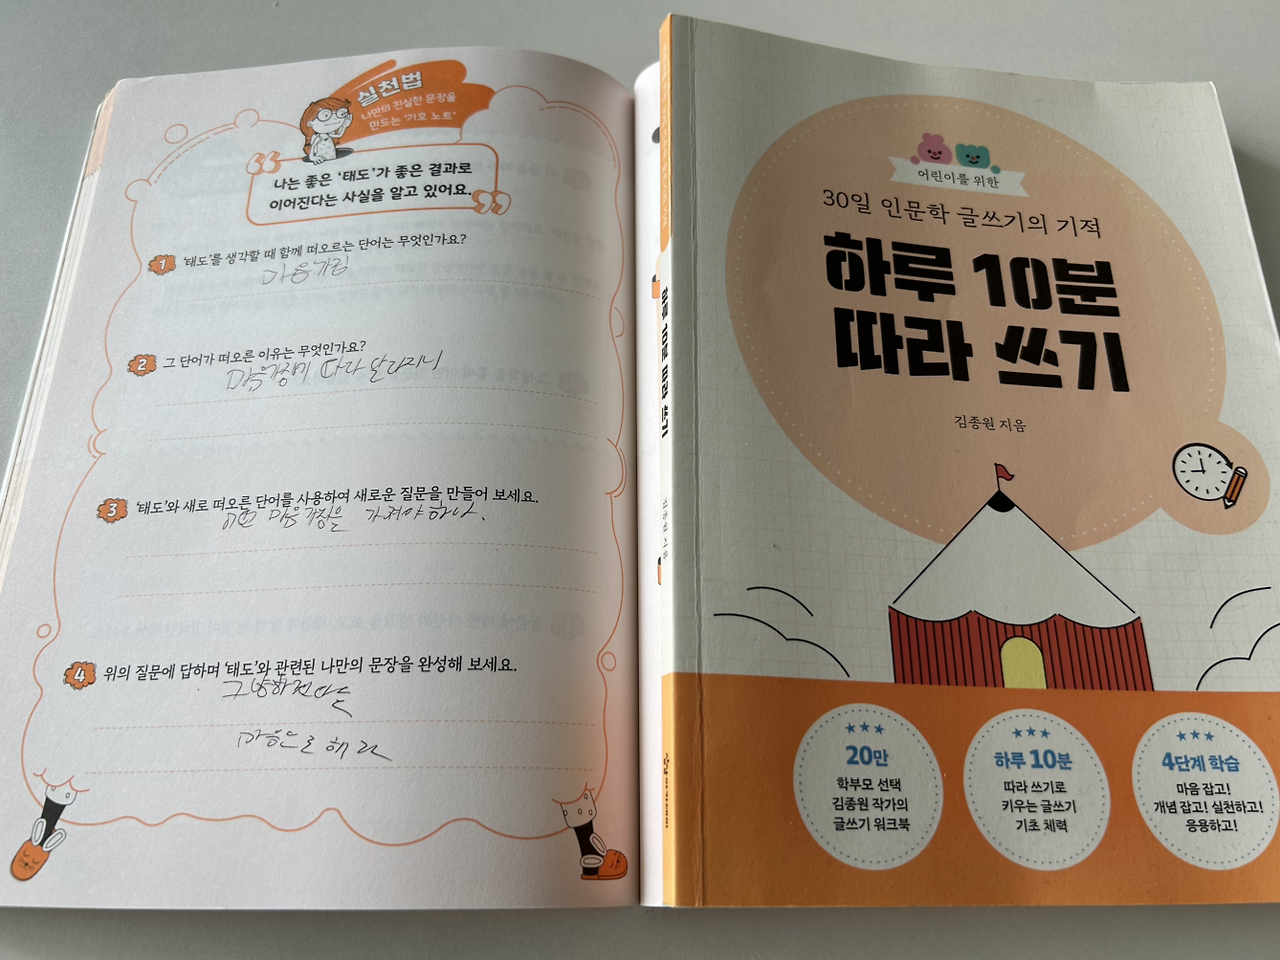 실천법
나만의 진실한 문장을
만드는 '기호 노트'
나는 좋은 '태도'가 좋은 결과로
이어진다는 사실을 알고 있어요.
1 '태도'를 생각할 때 함께 떠오르는 단어는 무엇인가요?
마음가짐
2 그 단어가 떠오른 이유는 무엇인가요?
마음가짐에 따라 달라지니
3 '태도'와 새로 떠오른 단어를 사용하여 새로운 질문을 만들어 보세요.
마음가짐을 가져야 하나.
4 위의 질문에 답하며 '태도'와 관련된 나만의 문장을 완성해 보세요.
마음으로 해라
하루 10분 따라 쓰기
김종원 지음
어린이를 위한
30일 인문학 글쓰기의 기적
하루 10분
따라 쓰기
김종원 지음
20만
학부모 선택
김종원 작가의
글쓰기 워크북
하루 10분
따라 쓰기로
키우는 글쓰기
기초 체력
4단계 학습
마음 잡고!
개념 잡고! 실천하고!
응용하고!